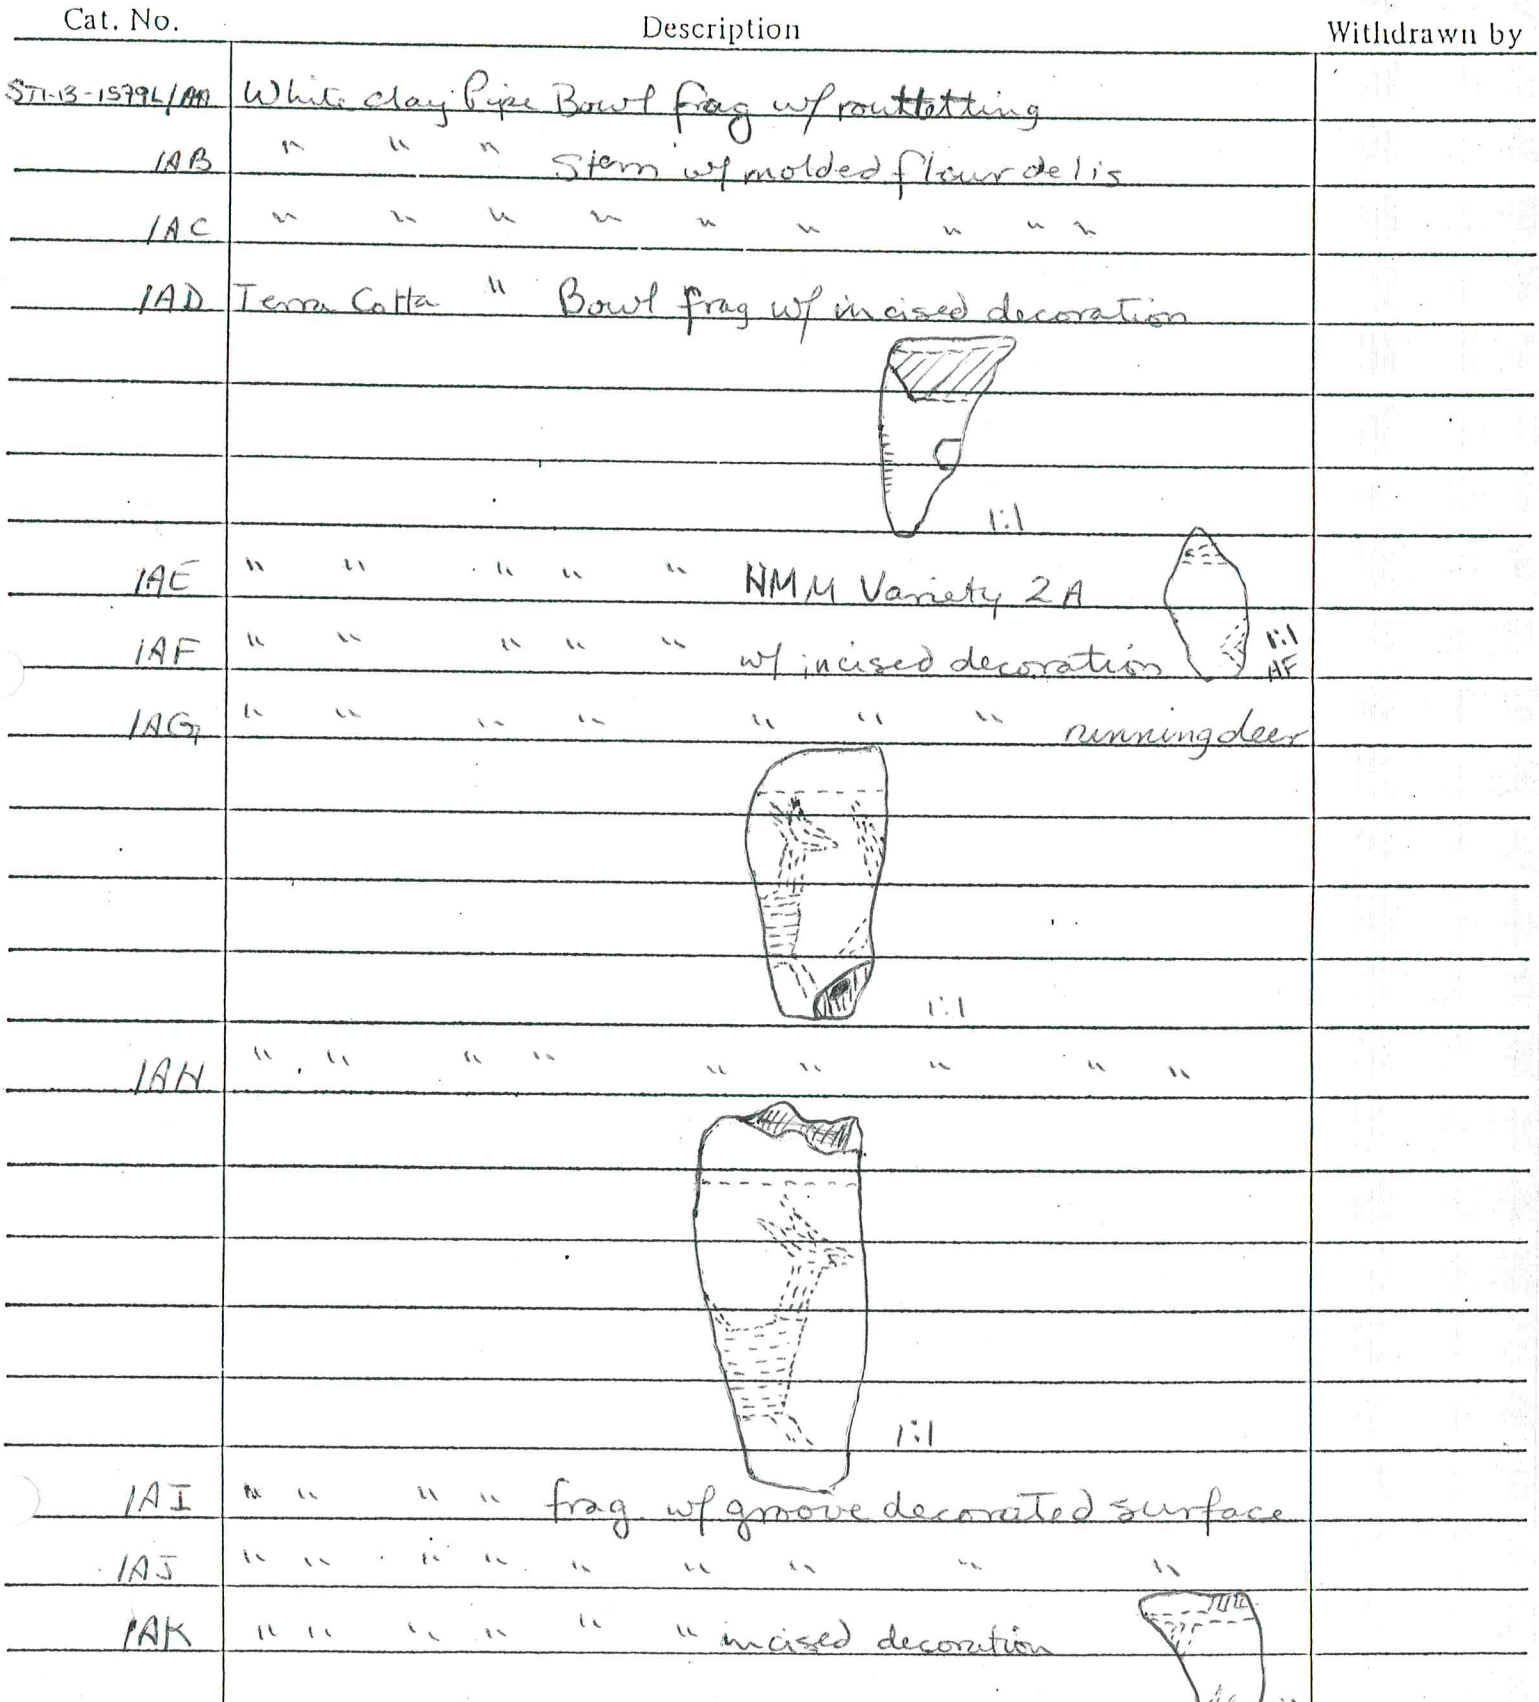 Cat. No. Description Withdrawn by
ST1-13-1579L/AA White clay Pipe Bowl frag w/ routtetting
/AB " " " Stem w/ molded flour de lis
/AC " " " " " " " " "
/AD Terra Cotta " Bowl frag w/ incised decoration
1:1
/AE " " " " " NMM Variety 2A
/AF " " " " " w/ incised decoration
1:1
AF
/AG " " " " " " " running deer
1:1
/AH " " " " " " " " "
1:1
/AI " " " " frag. w/ groove decorated surface
/AJ " " " " " " " " "
/AK " " " " " " incised decoration